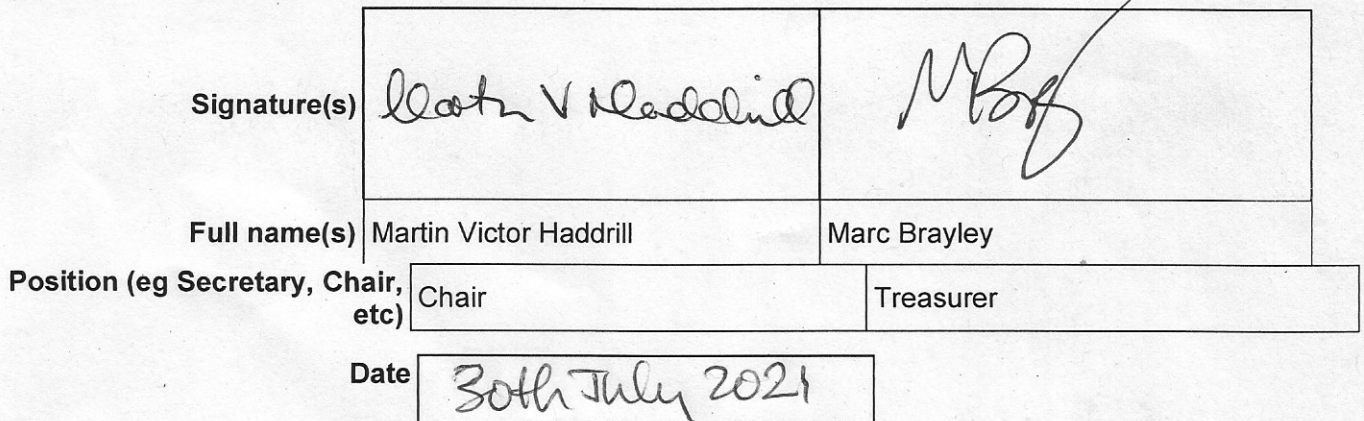 Signature(s) Martin V Haddrill MBry
Full name(s) Martin Victor Haddrill Marc Brayley
Position (eg Secretary, Chair, Chair Treasurer
etc)
Date 30th July 2021